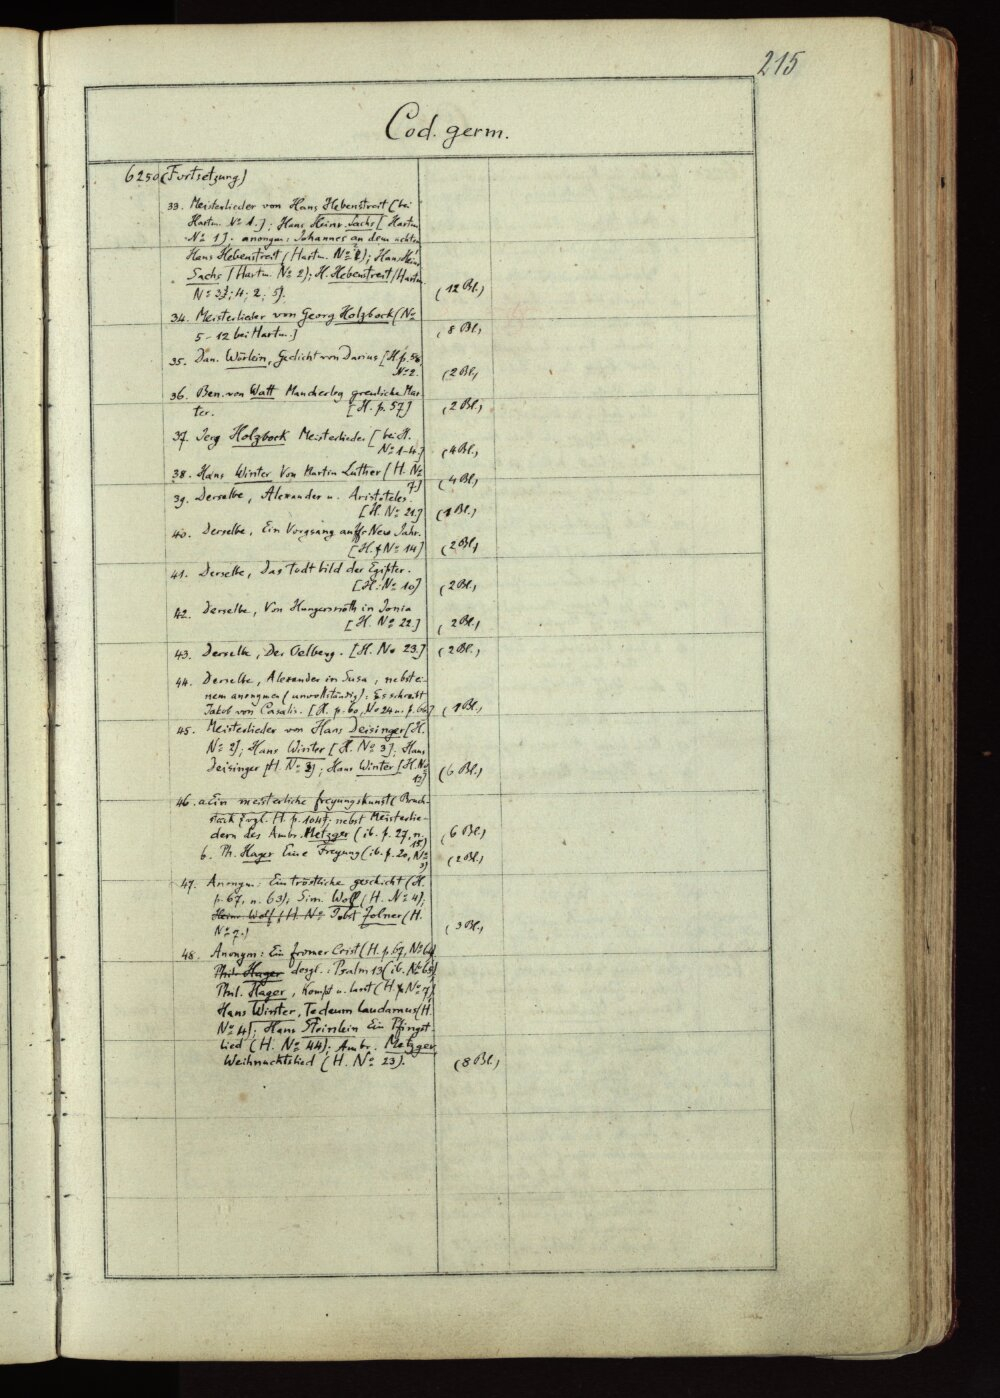 215
Cod. germ.
6250 (Fortsetzung)
33. Meisterlieder von Hans Hebenstreit (bei
Hartm. No 1.]; Hans Heinr. Sachs [Hartm.
No 1]. anonym: Johannes an dem achten
Hans Hebenstreit (Hartm. No 2); Hans Hein
Sachs (Hartm. No 2); H. Hebenstreit (Hartm.
No 3; 4; 2; 5). (12 Bl.)
34. Meisterlieder von Georg Holzbock (No
5-12 bei Hartm.] (8 Bl.)
35. Dan. Wörlein, Gedicht von Darius [H. p. 58,
No 2. (2 Bl.)
36. Ben. von Watt Mancherley greuliche Mar
ter. [H. p. 57] (2 Bl.)
37. Jerg Holzbock Meisterlieder [bei H.
No 1-4.] (4 Bl.)
38. Hans Winter Von Martin Luther (H. No
7.] (4 Bl.)
39. Derselbe, Alexander u. Aristoteles.
[H. No 21.] (1 Bl.)
40. Derselbe, Ein Vorgsang auffs New Jahr.
[H. No 14] (2 Bl.)
41. Derselbe, Das Todt bild der Egipter.
[H. No 10] (2 Bl.)
42. Derselbe, Von Hungersnoth in Jonia
[H. No 22.] (2 Bl.)
43. Derselbe, Der Oelberg. [H. No 23.] (2 Bl.)
44. Derselbe, Alexander in Susa, nebst ei-
nem anonymen (unvollständig): Es schreibt
Jakob von Casalis. [H. p. 60, No 24 u. p. 66] (1 Bl.)
45. Meisterlieder von Hans Deisinger [H.
No 2]; Hans Winter [H. No 3]; Hans
Deisinger [H. No 3]; Hans Winter [H. No
13] (6 Bl.)
46. a. Ein meisterliche freyungskunst (Bruch-
stück vgl. H. p. 104); nebst Meisterlie-
dern des Ambr. Metzger (ib. p. 27, n.
15) (6 Bl.)
b. Ph. Hager Eine Freyung (ib. p. 20, No
3) (2 Bl.)
47. Anonym: Ein tröstliche geschicht (H.
p. 67, n. 63); Sim. Wolf (H. No 4);
Heinr. Wolf (H. No Jobst Zolner (H.
No 7.) (3 Bl.)
48. Anonym: Ein fromer Crist (H. p. 67, No 64)
Phil. Hager desgl.: Psalm 13 (ib. No 65)
Phil. Hager, Kompt u. lasst (H. p. No 7);
Hans Winter, Te deum laudamus (H.
No 4); Hans Steinlein Ein Pfingst-
lied (H. No 44); Ambr. Metzger,
Weihnachtslied (H. No 23). (8 Bl.)